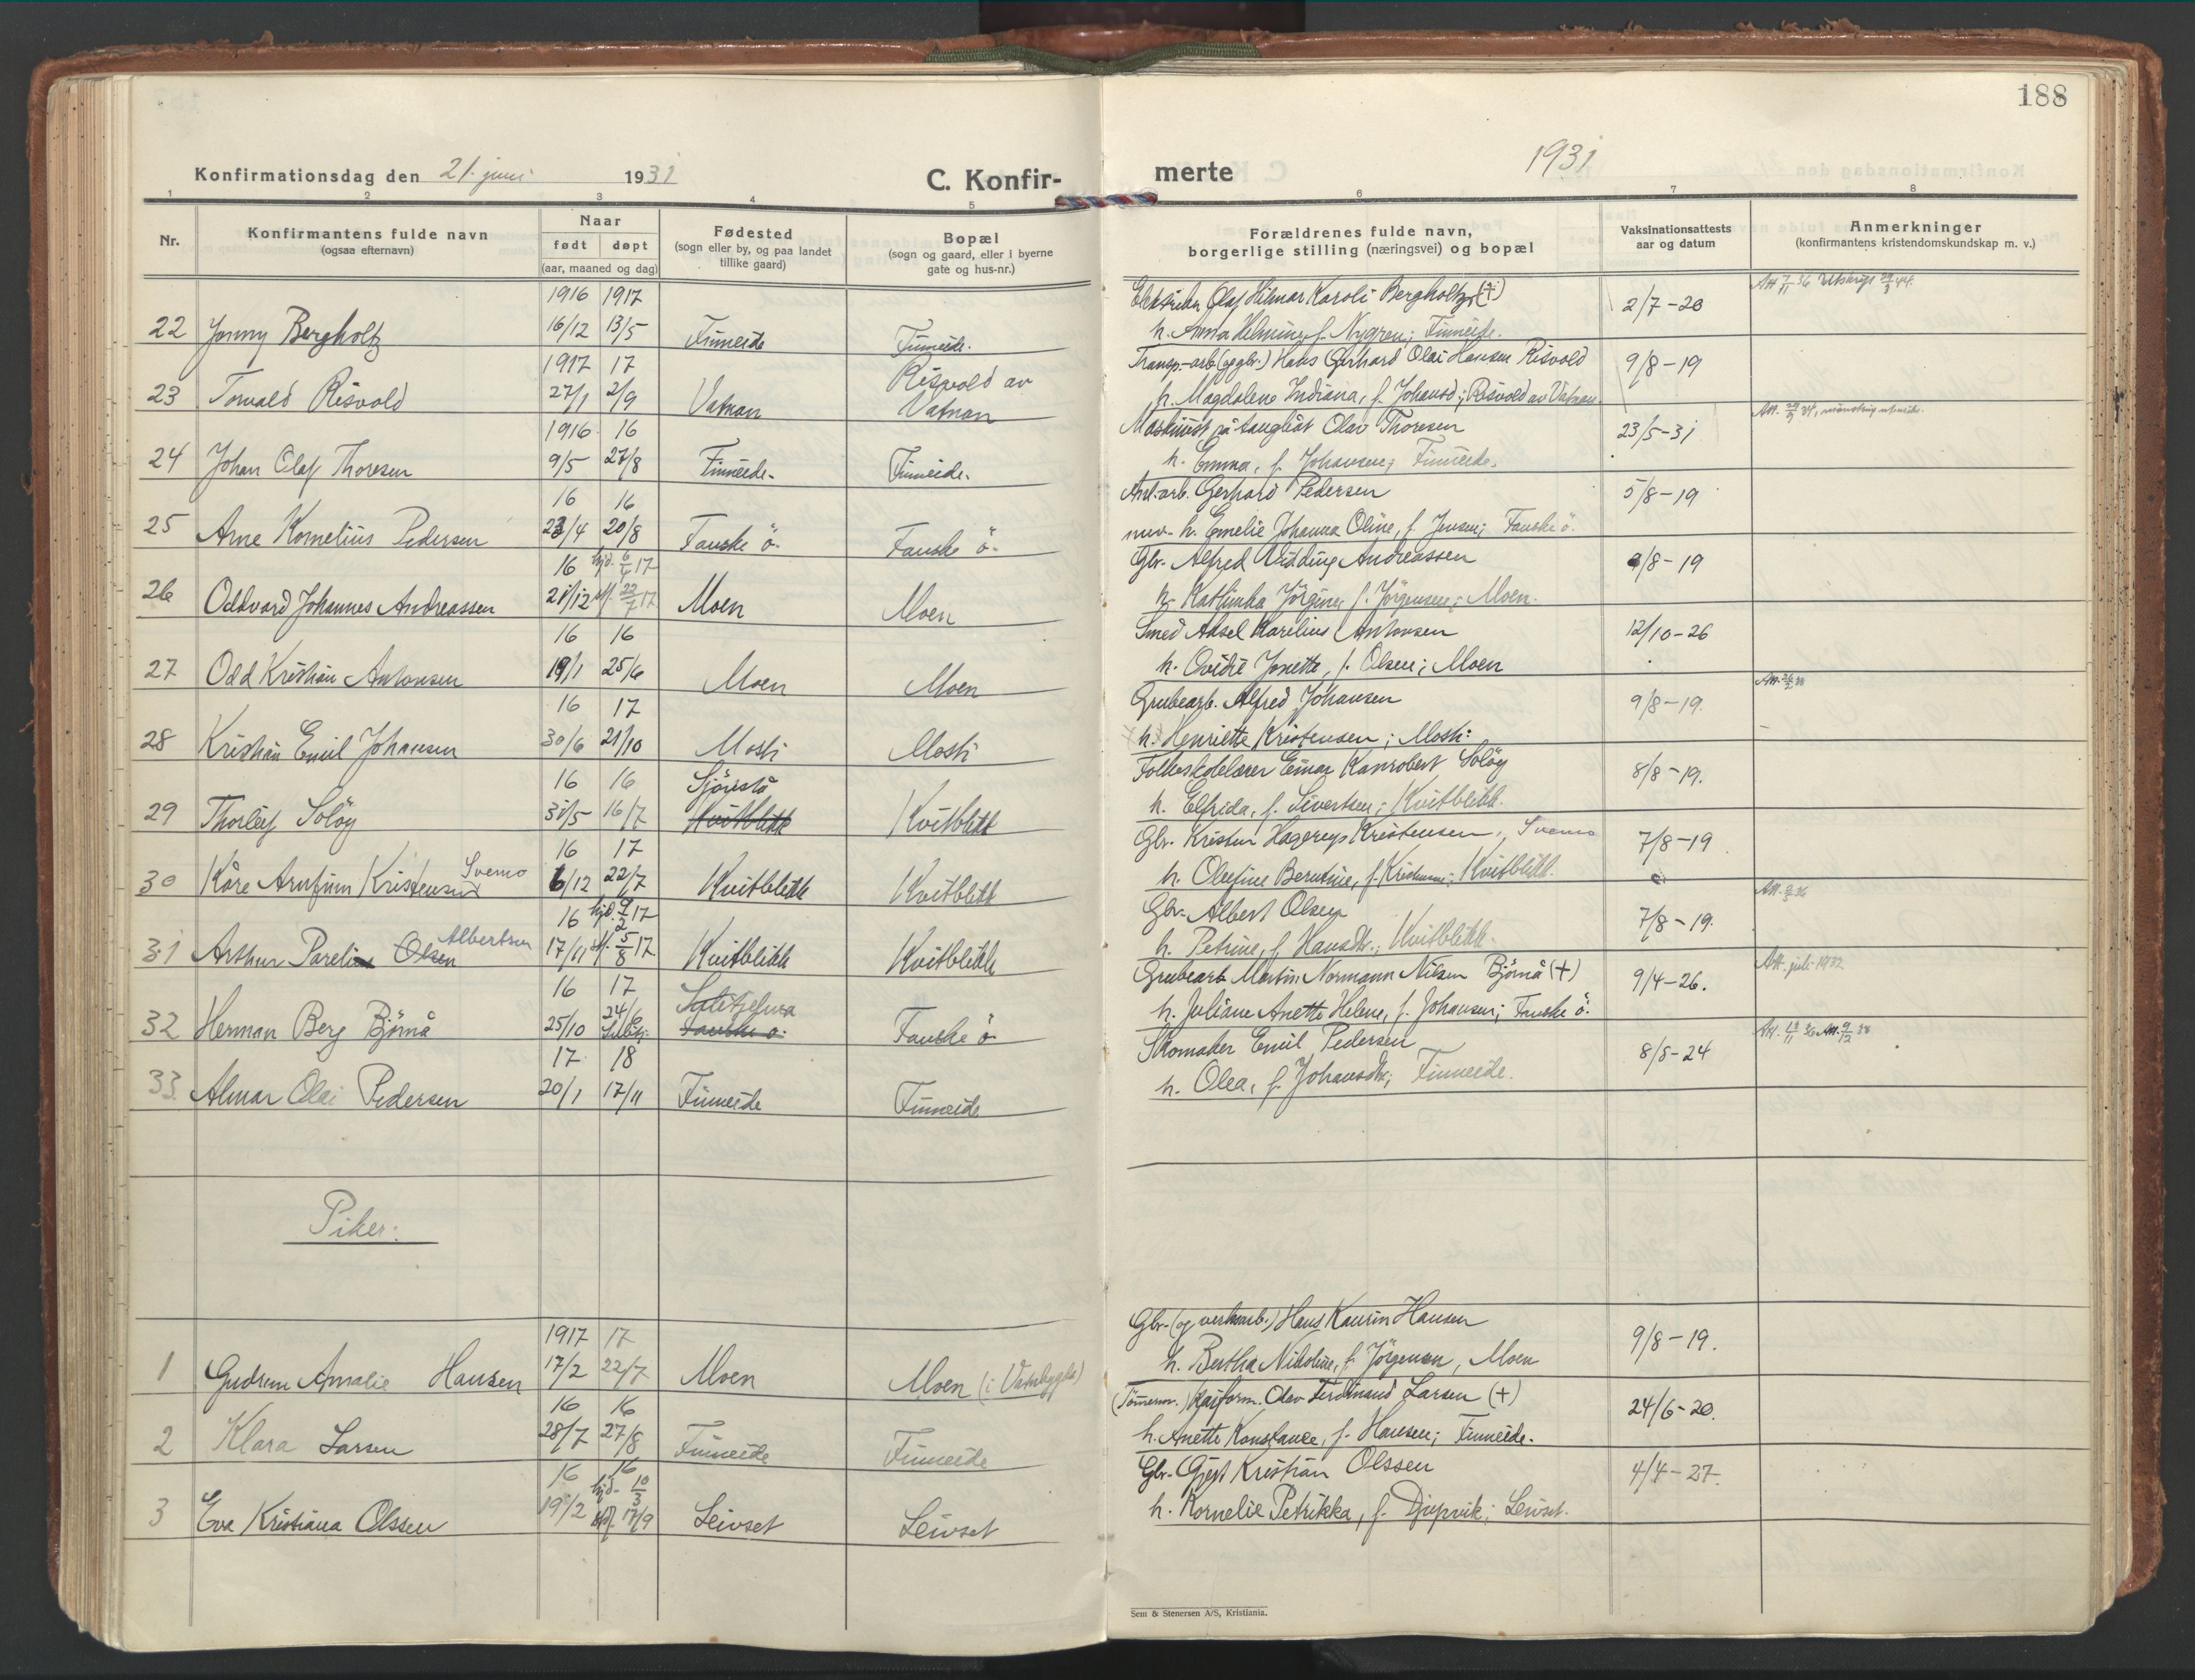 188
Konfirmationsdag den 21. juni 1931
C. Konfir-
merte
1931
1 2 3 4 5 6 7 8
Nr.
Konfirmantens fulde navn
(ogsaa efternavn)
Naar
født døpt
(aar, maaned og dag)
Fødested
(sogn eller by, og paa landet
tillike gaard)
Bopæl
(sogn og gaard, eller i byerne
gate og hus-nr.)
Forældrenes fulde navn,
borgerlige stilling (næringsvei) og bopæl
Vaksinationsattests
aar og datum
Anmerkninger
(konfirmantens kristendomskundskap m. v.)
1916 1917
22 Jonny Bergholtz 16/12 13/5 Finneide Finneide.
Olaf Hilmar Karoli Bergholtz (+)
h. Anna Helmine, f. Nygren; Finneide.
2/7-20
Att 7/11 36
1917 17
23 Torvald Risvold 27/1 2/9 Vatnan Risvold av
Vatnan
Transp.-arb. (og gbr.) Hans Gerhard Olai Hansen Risvold
h. Magdalene Indiana, f. Johansd; Risvold av Vatnan.
9/8-19
1916 16
24 Johan Olaf Thoresen 9/5 27/8 Finneide. Finneide.
Maskinist på taugbåt Olav Thoresen
h. Emma, f. Johansen; Finneide.
23/5-31
16 16
25 Arne Kornelius Pedersen 23/4 20/8 Fauske ö. Fauske ö.
Anl.arb. Gerhard Pedersen
nuv. h. Emelie Johanna Oline, f. Jensen; Fauske ö.
5/8-19
16 hjd. 6/4 17
26 Oddvard Johannes Andreassen 21/12 22/7 17 Moen Moen
Gbr. Alfred Andreassen
h. Kathinka Jörgine, f. Jörgensen; Moen.
9/8-19
16 16
27 Odd Kristian Antonsen 19/1 25/6 Moen Moen
Smed Aksel Karelius Antonsen
h. Ovidie Jonette, f. Olsen; Moen
12/10-26
16 17
28 Kristian Emil Johansen 30/6 21/10 Mosti Mosti
Grubearb. Alfred Johansen
h. Henriette Kristensen; Mosti
9/8-19.
16 16
29 Thorleif Solöy 31/5 16/7 Sjönstå
Kvitblikk Kvitblikk
Folkeskolelærer Einar Kanrobert Solöy
h. Elfrida, f. Sivertsen; Kvitblikk.
8/8-19.
16 17
30 Kåre Arnfinn Kristensen Svemo 6/12 22/7 Kvitblikk Kvitblikk
Gbr. Kristen Hagerup Kristensen, Svemo
h. Olufine Berntine, f. Kristensen; Kvitblikk.
7/8-19
16 hjd. 9/2 17
31 Arthur Pareli Olsen Albertsen 17/11 5/8 17 Kvitblikk Kvitblikk
Gbr. Albert Olsen
h. Petrine, f. Hansdtr.; Kvitblikk.
7/8-19.
16 17
32 Herman Berg Björnå 25/10 24/6
Sulitj. Sulitjelma
Fauske ö. Fauske ö
Grubearb. Martin Normann Nilsen Björnå (+)
h. Juliane Anette Helene, f. Johansen; Fauske ö.
9/4-26.
Att. juli 1932
17 18
33 Almar Olai Pedersen 20/1 17/11 Finneide Finneide
Skomaker Emil Pedersen
h. Olea, f. Johansdtr; Finneide.
8/5-24
Piker:
1917 17
1 Gudrun Amalie Hansen 17/2 22/7 Moen Moen (i Vatnbygda)
Gbr. (og verksarb.) Hans Kaurin Hansen
h. Bertha Nikoline, f. Jörgensen, Moen
9/8-19.
16 16
2 Klara Larsen 28/7 27/8 Finneide Finneide
(Tömrerm.) Kaiform. Olav Ferdinand Larsen (+)
h. Anette Konstance, f. Hansen; Finneide.
24/6-20.
16 16
hjd. 10/3
3 Eva Kristiana Olssen 19/2 17/9 Leivset Leivset
Gbr. Gjert Kristian Olssen
h. Kornelie Petrikka, f. Djupvik; Leivset.
4/4-27.
Sem & Stenersen A/S, Kristiania.